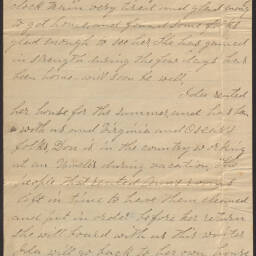 clock train very tired and glad
to get home and found some folks
glad enough to see her She has gained
in strength during the few days has
been home. will soon be well.
Ida rented
her house for the summer and has been
with us and Virginia and Oscar's
folks. Don is in the country working
at an during vacation. The
people that rented rooms
left in time to have them cleaned
and put in order before her return
she will board with us this winter
Ida will go back to her own house